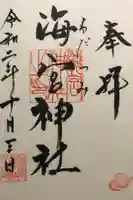 奉拝
海宮神社
わだつみ
令和二年十月三日